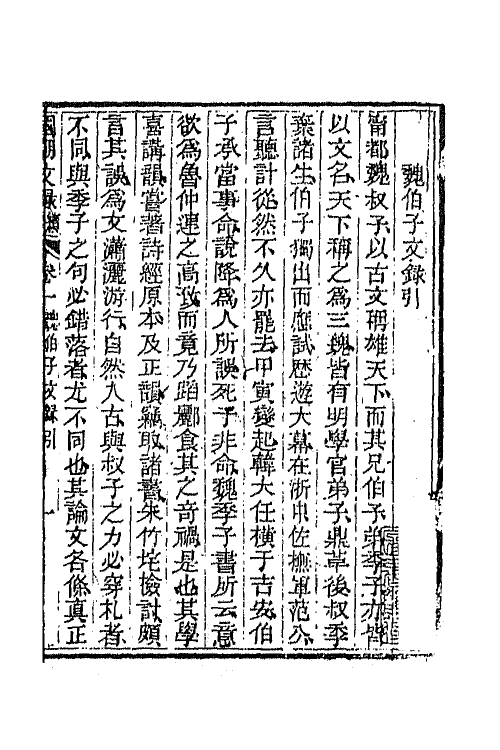 魏伯子文錄引
甯都魏叔子以古文稱雄天下而其兄伯子弟季子亦皆
以文名天下稱之為三魏皆有明學官弟子鼎革後叔季
棄諸生伯子獨出而應試歷遊大幕在浙中佐撫軍范公
言聽計從然不久亦罷去甲寅變起韓大任橫于吉安伯
子承當事命說降為人所誤死于非命魏季子書所云意
欲為魯仲連之高致而竟乃蹈酈食其之奇禍是也其學
喜講韻嘗著詩經原本及正韻竊取諸書朱竹垞檢討頗
言其誤為文瀟灑游行自然入古與叔子之力必穿札者
不同與季子之句必錯落者尤不同也其論文各條真正
國朝文錄 卷一魏伯子文錄引 一